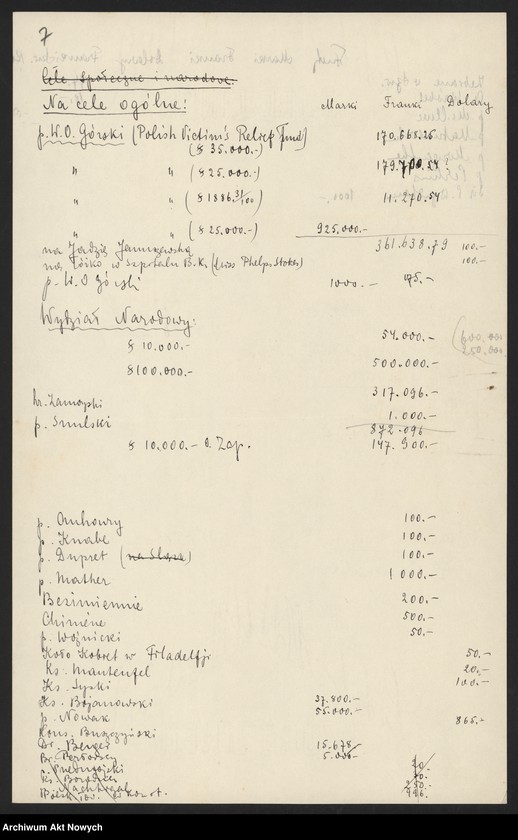 7
Cele społeczne i narodowe.
Na cele ogólne: Marki Franki Dolary
p. W.O. Górski (Polish Victim's Relief Fund) 170.668.25
($ 35.000.-)
" " ($ 25.000.-) 179.700.54
" " ($ 1886.31/100) 11.270.54
" " ($ 25.000.-) 925.000.-
361.638.79
na Jadzię Januszewską 100.-
na łóżko w szpitalu B.K. (Miss Phelps Stokes) 100.-
p. W.O Górski 1000.- 45.-
Wydział Narodowy:
$ 10.000.- 54.000.-
$100.000.- 500.000.-
hr. Zamoyski 317.096.-
p. Smulski 1.000.-
872.096
$ 10.000.- 147.900.-
p. 100.-
p. Knabe 100.-
p. Dupret (na Śląsk) 100.-
p. Mather 1000.-
Bezimiennie 200.-
Chimène 500.-
p. Woźnicki 50.-
Koło Kobiet w Filadelfji 50.-
Ks. Manteufel 20.-
Ks. 100.-
Ks. Bojanowski 37.800.-
p. Nowak 55.000.- 865.-
Kons. Buszczyński
Berger 15.678
5.000-